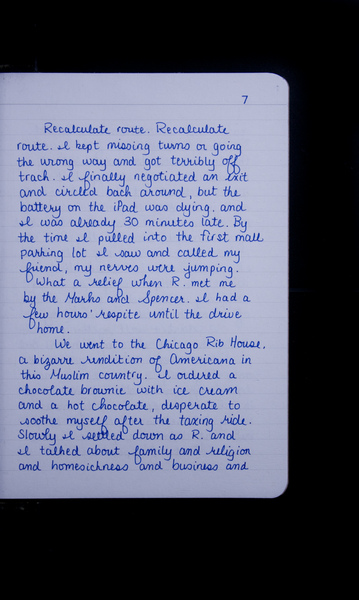 7
Recalculate route. Recalculate
route. I kept missing turns or going
the wrong way and got terribly off
track. I finally negotiated an exit
and circled back around, but the
battery on the iPad was dying. and
I was already 30 minutes late. By
the time I pulled into the first mall
parking lot I saw and called my
friend, my nerves were jumping.
What a relief when R. met me
by the Marks and Spencer. I had a
few hours' respite until the drive
home.
We went to the Chicago Rib House,
a bizarre rendition of Americana in
this Muslim country. I ordered a
chocolate brownie with ice cream
and a hot chocolate, desperate to
soothe myself after the taxing ride.
Slowly I settled down as R. and
I talked about family and religion
and homesickness and business and